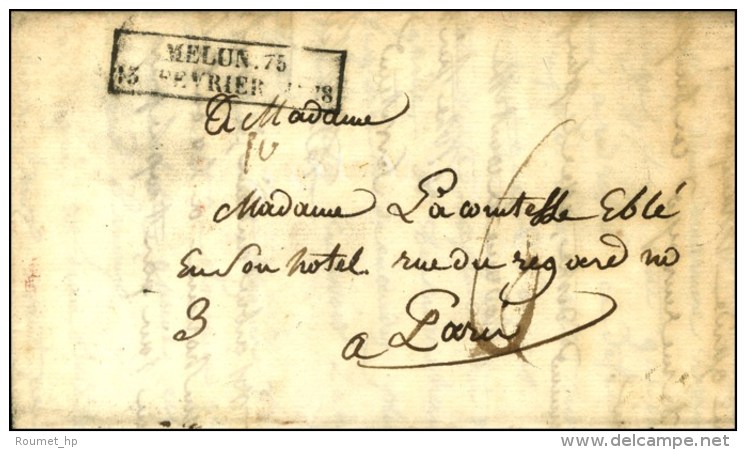 MELUN. 75
15 FEVRIER 18
A Madame
10
Madame La comtesse Eblé
En Son hotel rue du regard no
3
a Paris
6
Roumet_hp
www.delcampe.net